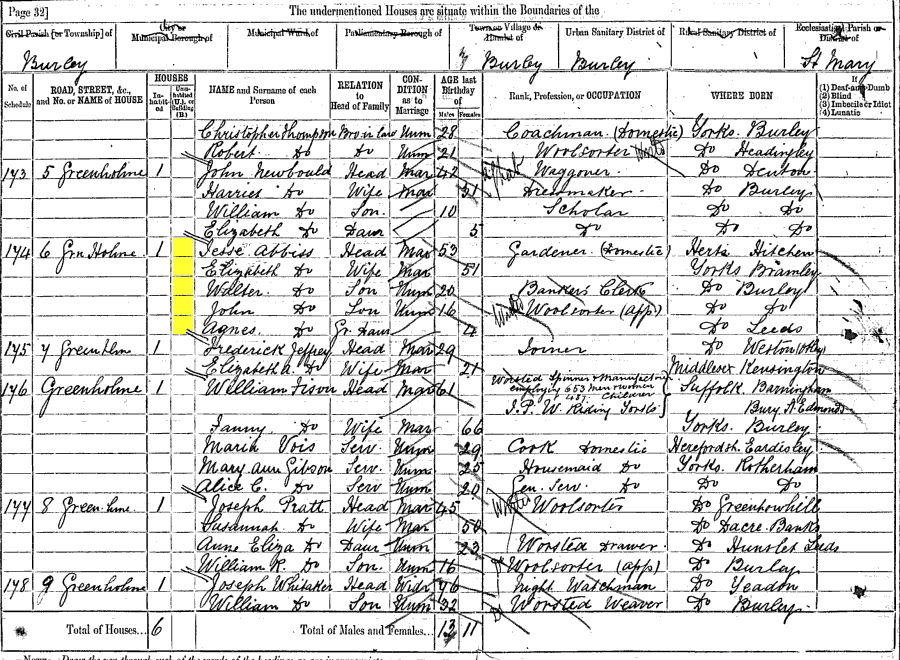 Page 32] The undermentioned Houses are situate within the Boundaries of the
Civil Parish [or Township] of City or Municipal Borough of Municipal Ward of Parliamentary Borough of Town or Village or Hamlet of Urban Sanitary District of Rural Sanitary District of Ecclesiastical Parish or District of
Burley Burley Burley St Mary
No. of Schedule ROAD, STREET, &c., and No. or NAME of HOUSE HOUSES Inhabited Uninhabited (U.), or Building (B.) NAME and Surname of each Person RELATION to Head of Family CONDITION as to Marriage AGE last Birthday of Males Females Rank, Profession, or OCCUPATION WHERE BORN If (1) Deaf-and-Dumb (2) Blind (3) Imbecile or Idiot (4) Lunatic
Christopher Thompson Bro in law Unm 28 Coachman (Domestic) Yorks. Burley
Robert Do Do Unm 21 Woolsorter Do Headingley
173 5 Greenholme 1 John Newbould Head Mar 42 Waggoner Do Denton
Harriet Do Wife Mar 31 Dressmaker Do Burley
William Do Son 10 Scholar Do Do
Elizabeth Do Daur 5 Do Do Do
174 6 Grn Holme 1 Jesse Abbiss Head Mar 53 Gardener (Domestic) Herts Hitchen
Elizabeth Do Wife Mar 51 Yorks Bramley
Walter Do Son Unm 20 Bankers Clerk Do Burley
John Do Son Unm 16 Woolsorter (app) Do Do
Agnes Do Gr. Daur 4 Do Leeds
175 7 Greenhlme 1 Frederick Jeffrey Head Mar 29 Joiner Do Weston Otley
Elizabeth A. Do Wife Mar 21 Middlesex Kensington
176 Greenholme 1 William Fison Head Mar 61 Worsted Spinner & Manufacturer Suffolk Barningham
employing 653 men & women
487 Children
J.P. W. Riding Yorks Bury St Edmonds
Fanny Do Wife Mar 66 Yorks. Burley
Maria Vois Serv. Unm 29 Cook Domestic Herefordsh. Eardisley
Mary Ann Gibson Serv. Unm 25 Housemaid Do Yorks. Rotherham
Alice C. Do Serv Unm 20 Gen. Serv. Do Do Do
177 8 Green.hme 1 Joseph Pratt Head Mar 45 Woolsorter Do Greenhowhill
Susannah Do Wife Mar 50 Do Dacre Banks
Anne Eliza Do Daur Unm 23 Worsted Drawer Do Hunslet Leeds
William R. Do Son Unm 16 Woolsorter (app) Do Burley
178 9 Greenholme 1 Joseph Whitaker Head Widr 76 Night Watchman Do Yeadon
William Do Son Unm 32 Worsted Weaver Do Burley
Total of Houses... 6 Total of Males and Females... 13 11